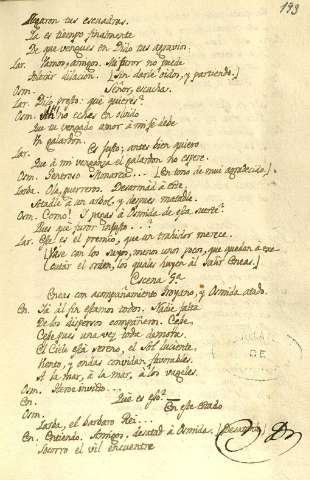 193
Llegaron tus escuadras.
Ya es tiempo finalmente
De que vengues en Dido tus agravios.
Iar. Vamos, amigos. Mi furor no puede
Sufrir dilacion. (Sin darle oidos, y partiendo.)
Osm. Señor, escucha.
Iar. Dilo presto: qué quieres?
Osm. Ah! no eches en olvido
Que tu vengado amor á mi fe debe
Un galardon.
Iar. Es justo; antes bien quiero
Que á mi venganza el galardon no espere.
Osm. Generoso Monarca... (En tono de muy agradecido.)
Iarba. Ola, guerreros. Desarmad á este
Atadle á un arbol, y despues matadle.
Osm. Como! Y pagas á Osmida de esa suerte?
Pues que furor injusto...?
Iar. Ese es el premio, que un traidor merece.
(Vase con los suyos, menos unos pocos, que quedan a exe-
cutar el orden, los quales huyen al salir Eneas.)
Escena 5.ª
Eneas con acompañamiento Troyano, y Osmida atado.
En. Ya al fin estamos todos. Nadie falta
De los dispersos compañeros. Cese,
Cese pues una vez toda demora.
El Cielo está sereno, el Sol luciente
Viento, y ondas convidan favorables.
A la mar, á la mar, á los vageles.
Osm. Heroe invicto...
En. Que es eso?
En este estado
Osm.
Iarba, el barbaro Rei...
En. Entiendo. Amigos, desatad á Osmida.
Socorro el vil encuentre